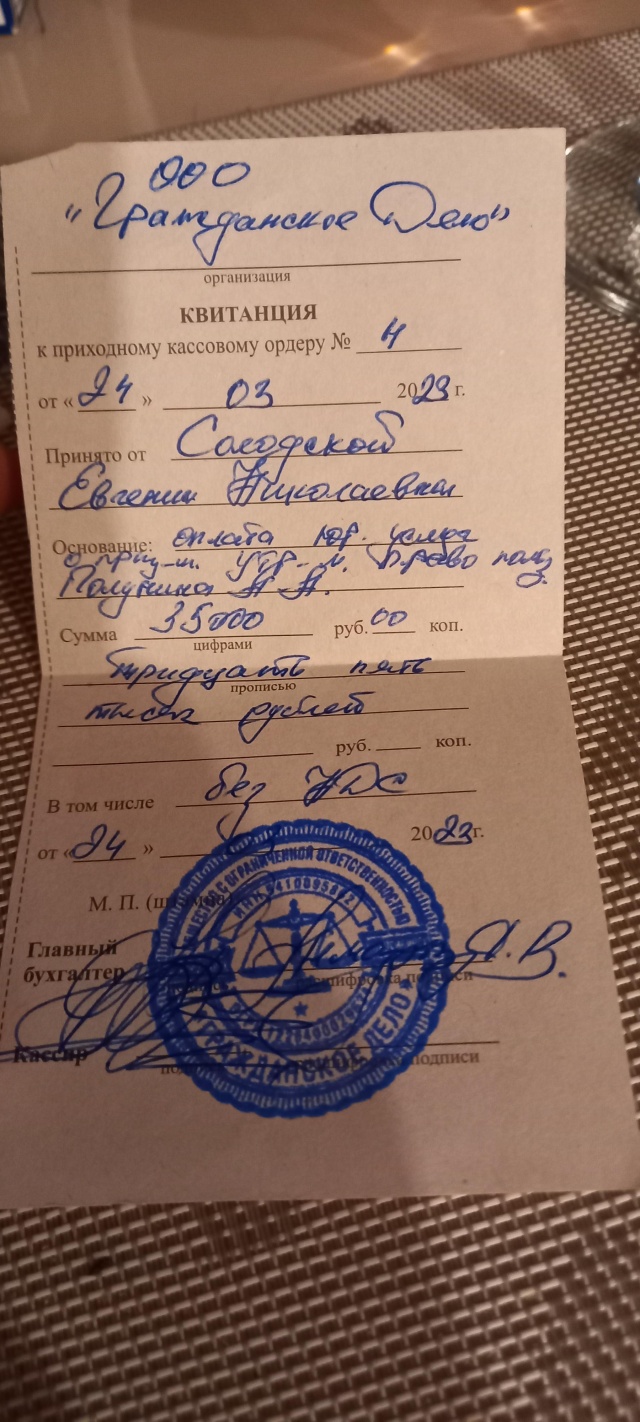 ООО
"Гражданское Дело"
организация
КВИТАНЦИЯ
к приходному кассовому ордеру № 4
от «24» 03 2023 г.
Принято от
Евгении Николаевны
Основание: оплата юр. услуг
о призн-и. утр-м. право польз
Полунина Н.Н.
Сумма 35000 руб. 00 коп.
цифрами
тридцать пять
прописью
тысяч рублей
руб. коп.
В том числе без НДС
от «24» 2023г.
М. П. (штампа)
Главный
бухгалтер
А.В.
расшифровка подписи
Кассир
подписи
ОБЩЕСТВО С ОГРАНИЧЕННОЙ ОТВЕТСТВЕННОСТЬЮ
ИНН
ГРАЖДАНСКОЕ ДЕЛО